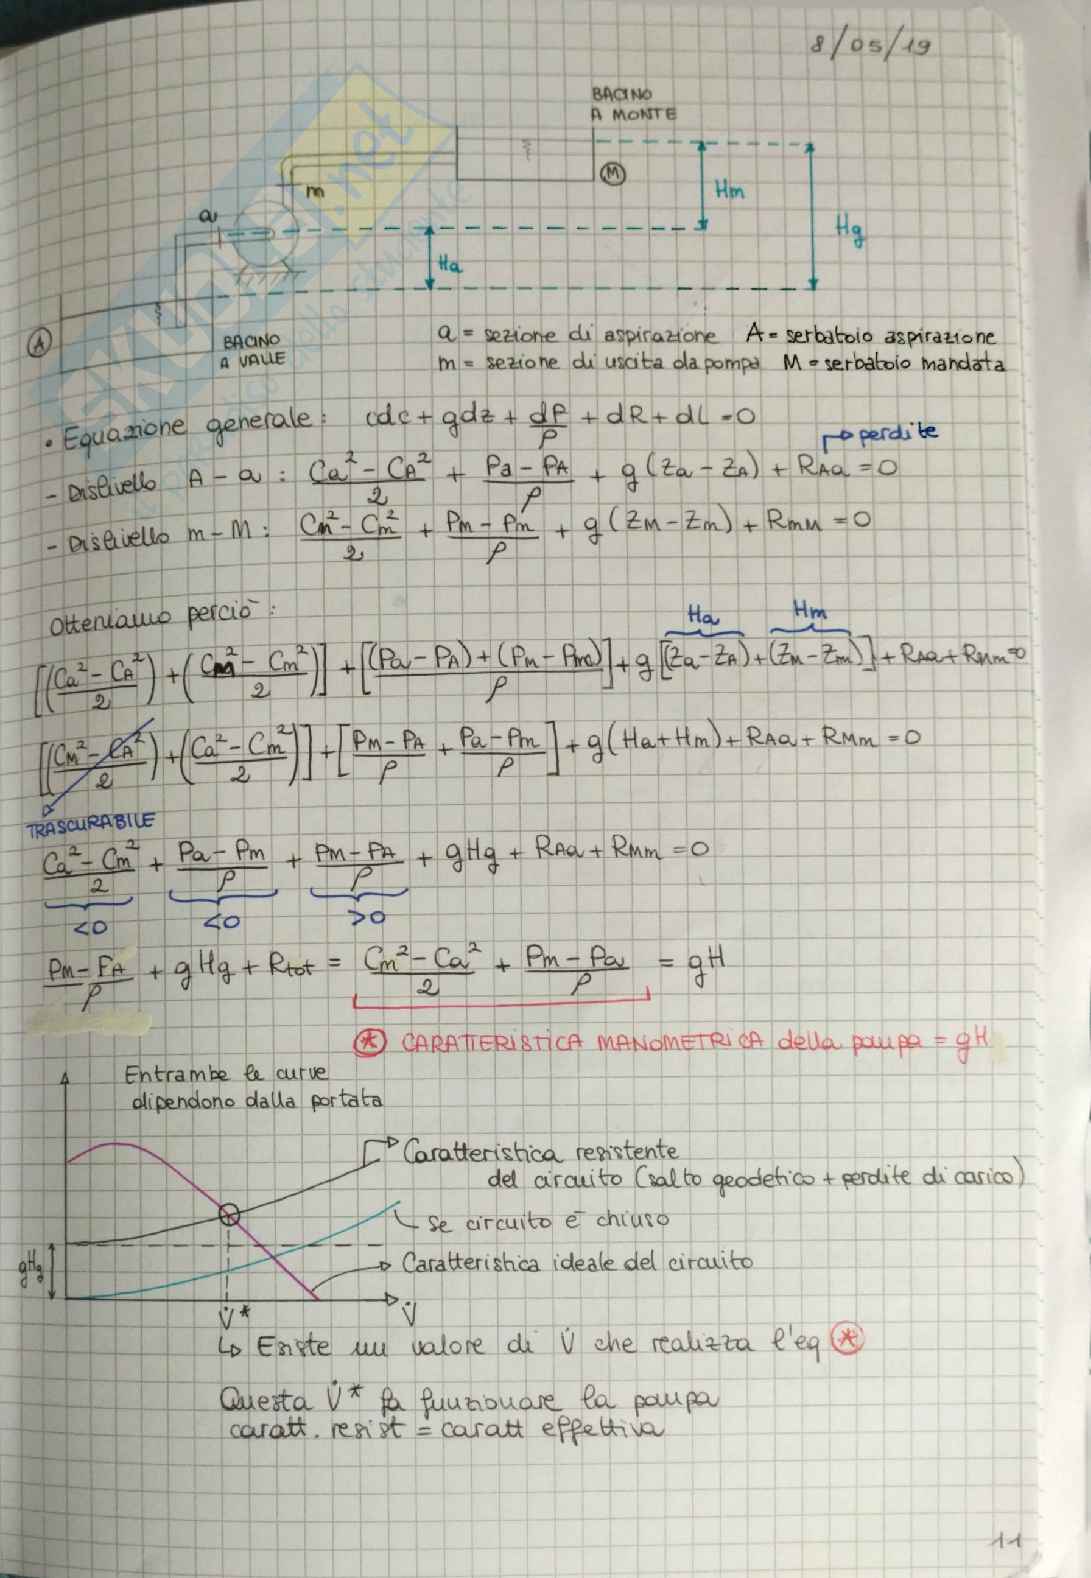 8/05/19
BACINO
A MONTE
M
m
Hm
a
Hg
Ha
A
BACINO
A VALLE
a = sezione di aspirazione A = serbatoio aspirazione
m = sezione di uscita da pompa M = serbatoio mandata
• Equazione generale: cdc + gdz + dP/ρ + dR + dL = 0
perdite
- Dislivello A - a : (Ca² - CA²)/2 + (Pa - PA)/ρ + g(Za - ZA) + RAa = 0
- Dislivello m - M : (CM² - Cm²)/2 + (PM - Pm)/ρ + g(ZM - Zm) + RmM = 0
Otteniamo perciò:
Ha Hm
[((Ca² - CA²)/2) + ((CM² - Cm²)/2)] + [((Pa - PA) + (PM - Pm))/ρ] + g[(Za - ZA) + (ZM - Zm)] + RAa + RMm = 0
[((CM² - CA²)/2) + ((Ca² - Cm²)/2)] + [(PM - PA)/ρ + (Pa - Pm)/ρ] + g(Ha + Hm) + RAa + RMm = 0
TRASCURABILE
(Ca² - Cm²)/2 + (Pa - Pm)/ρ + (PM - PA)/ρ + gHg + RAa + RMm = 0
<0 <0 >0
(PM - PA)/ρ + gHg + Rtot = (Cm² - Ca²)/2 + (Pm - Pa)/ρ = gH
* CARATTERISTICA MANOMETRICA della pompa = gH
Entrambe le curve
dipendono dalla portata
Caratteristica resistente
del circuito (salto geodetico + perdite di carico)
Se circuito è chiuso
gHg
Caratteristica ideale del circuito
V̇* V̇
↳ Esiste un valore di V̇ che realizza l'eq *
Questa V̇* fa funzionare la pompa
caratt. resist = caratt effettiva
11